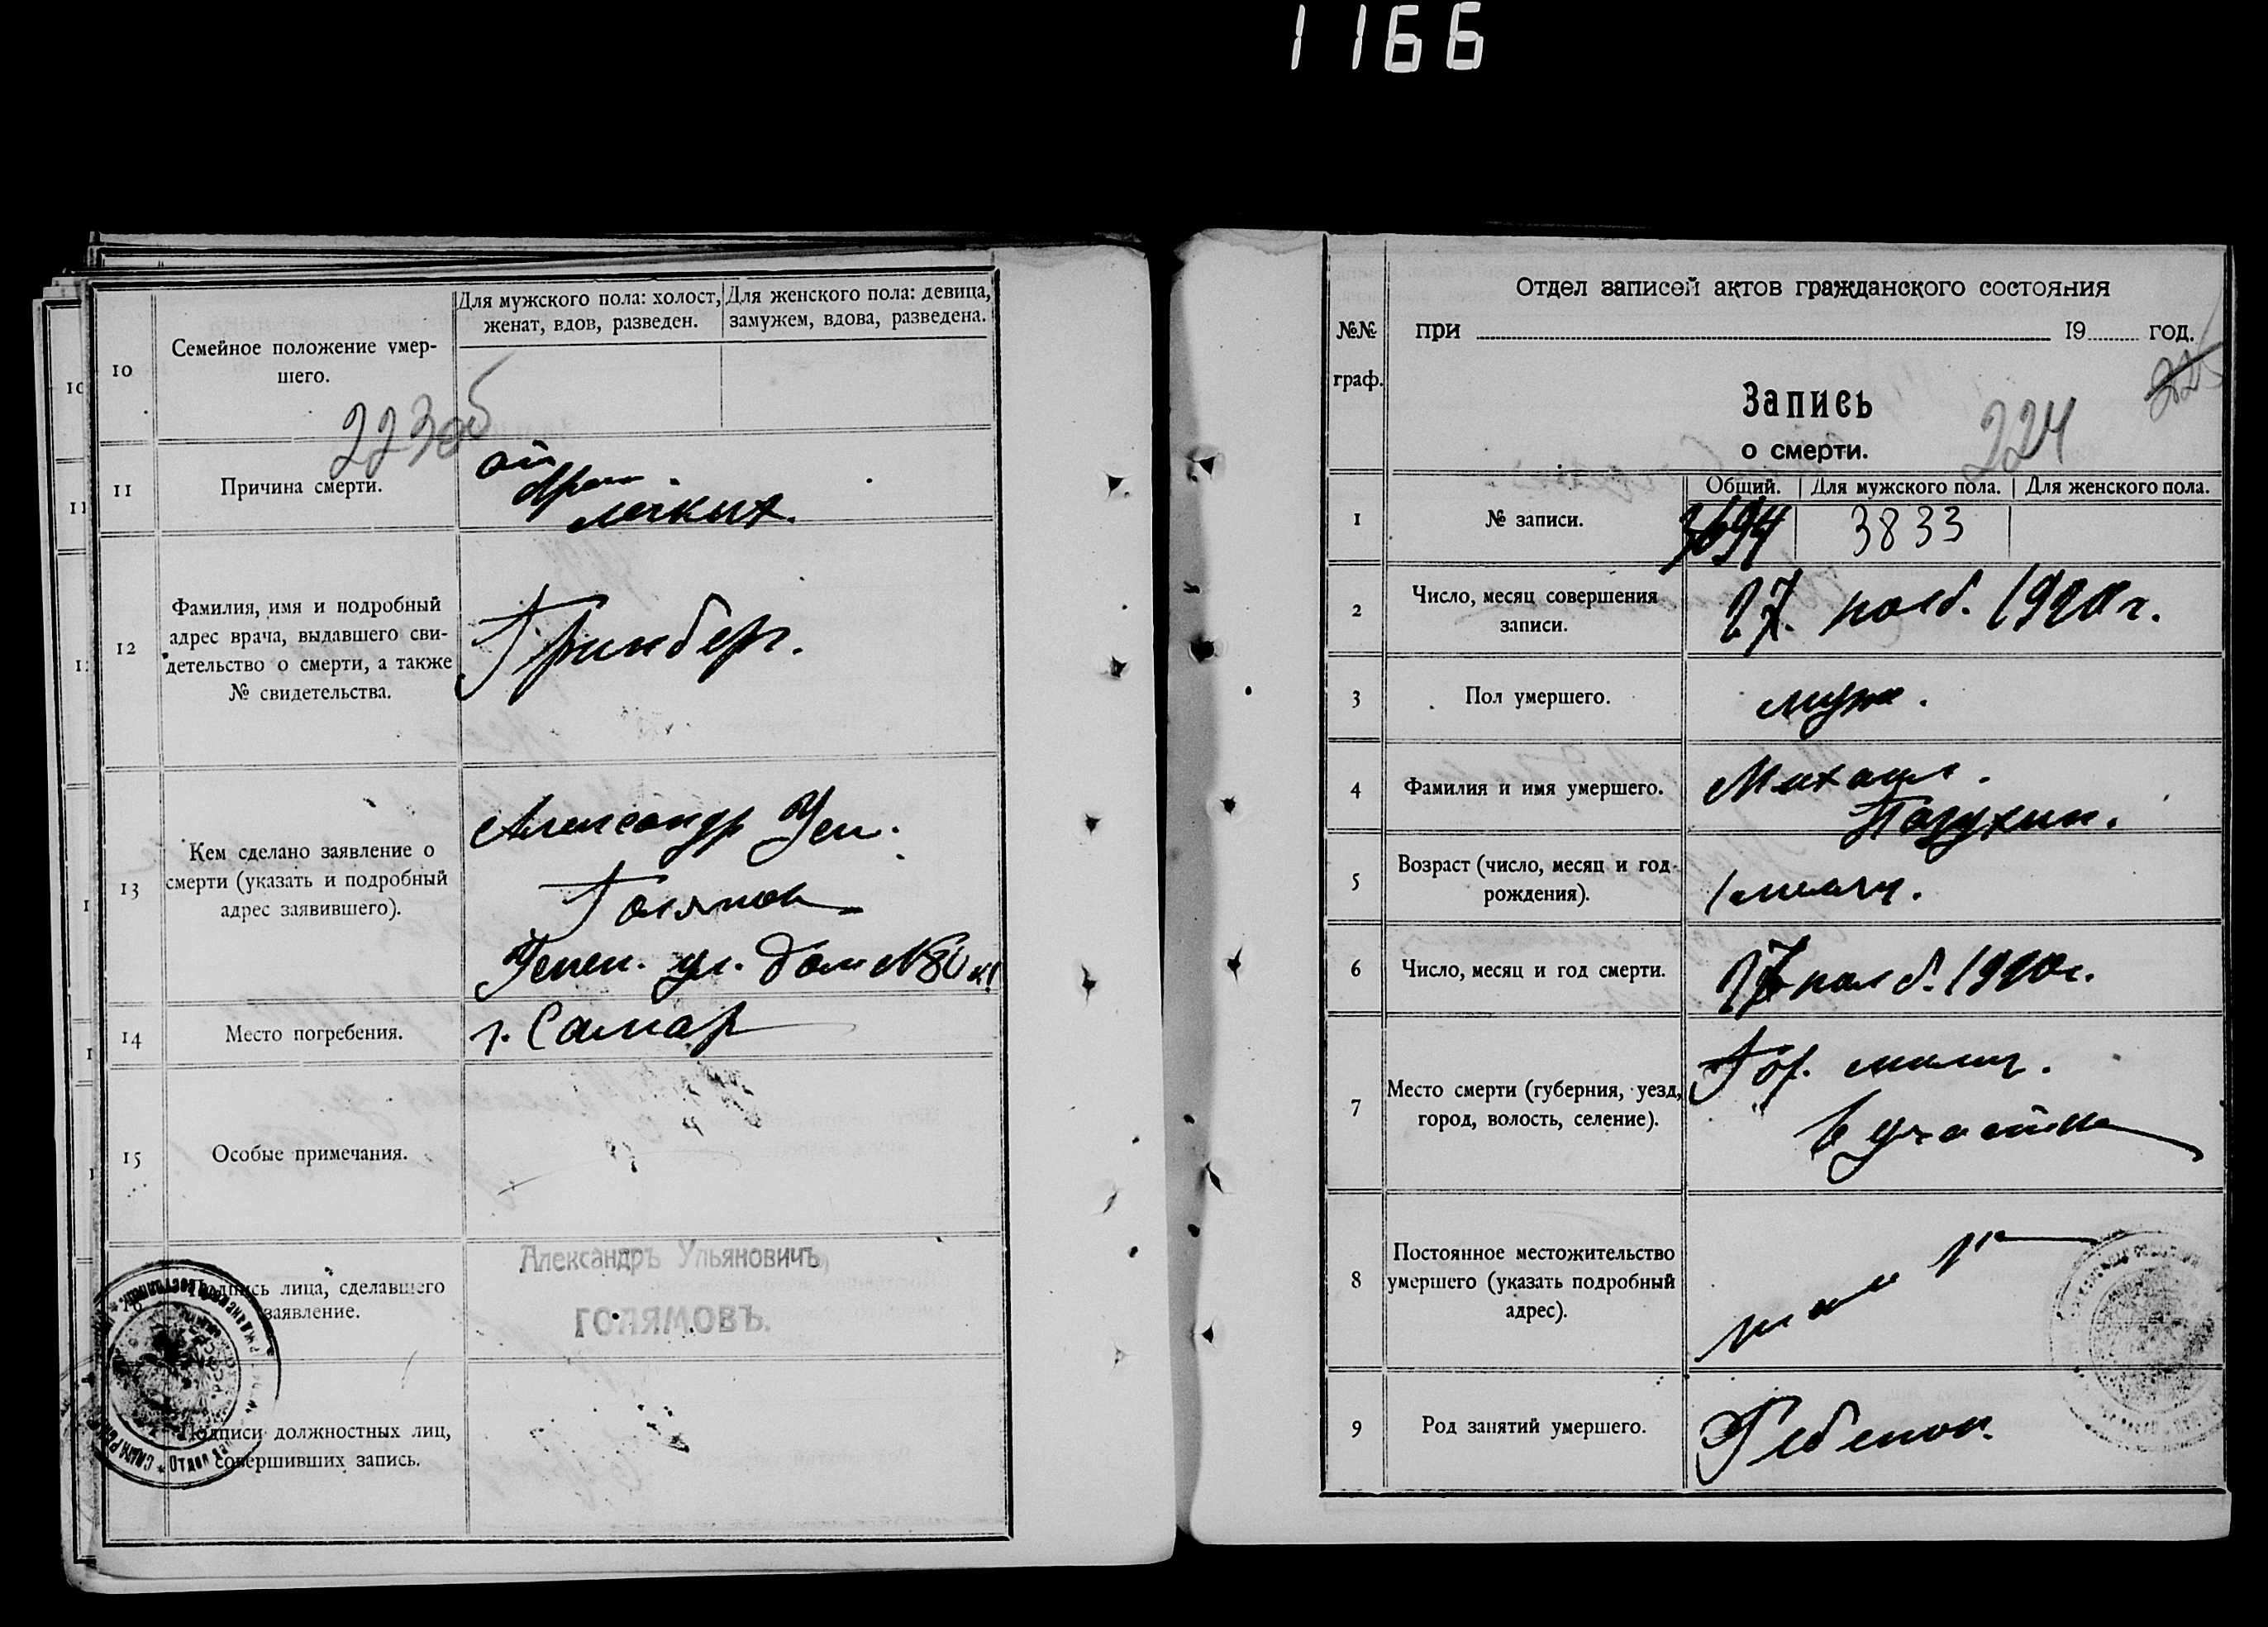 1166
10
Семейное положение умер-
шего.
Для мужского пола: холост,
женат, вдов, разведен.
Для женского пола: девица,
замужем, вдова, разведена.
223 об
11
Причина смерти.
от
легких.
12
Фамилия, имя и подробный
адрес врача, выдавшего сви-
детельство о смерти, а также
№ свидетельства.
Гринберг.
13
Кем сделано заявление о
смерти (указать и подробный
адрес заявившего).
Александр Ул.
Голямов
ул. дом №80
14
Место погребения.
г. Самар
15
Особые примечания.
Подпись лица, сделавшего
заявление.
Александръ Ульяновичъ
ГОЛЯМОВЪ.
Подписи должностных лиц,
совершивших запись.
Отдел
№№
граф.
Отдел записей актов гражданского состояния
при 19 год.
Запись
о смерти.
224
1
№ записи.
Общий.
Для мужского пола.
3833
Для женского пола.
2
Число, месяц совершения
записи.
27. нояб. 1920 г.
3
Пол умершего.
муж.
4
Фамилия и имя умершего.
Михаил.
Пазухин.
5
Возраст (число, месяц и год
рождения).
1 месяц.
6
Число, месяц и год смерти.
27 нояб. 1920 г.
7
Место смерти (губерния, уезд,
город, волость, селение).
Гор. милиц.
6 участка
8
Постоянное местожительство
умершего (указать подробный
адрес).
9
Род занятий умершего.
Ребенок.